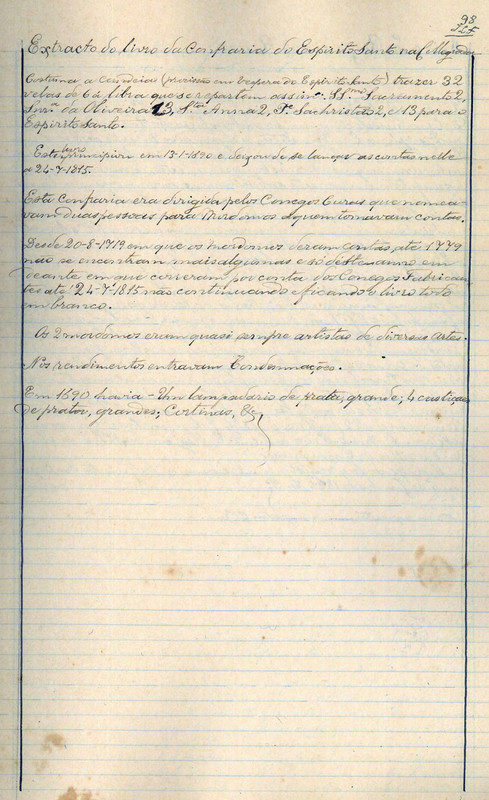 98
Extracto do livro da Confraria do Espirito Santo na C.
Costuma a Candeia (procissão em Vespera do Espirito Santo) trazer 32
velas de 6 á libra que se repartem assim: SS.mo Sacramento 2,
Snr.ª da Oliveira 13, S.ta Anna 2, P.es Sachristães 2, e 13 para o
Espirito Santo.
Este livro principiou em 13-1-1690 e deixou de se lançar as contas nelle
a 24-7-1815.
Esta confraria era dirigida pelos Conegos Curas que nomea-
vam duas pessoas para Mordomos a quem tomavam contas.
Desde 20-8-1719 em que os mordomos deram contas até 1779
não se encontram mais algumas e só deste anno em
deante em que correram por conta dos Conegos Fabrican-
tes até 24-7-1815 não continuando e ficando o livro todo
em branco.
Os 2 mordomos eram quasi sempre artistas de diversas artes.
Nos rendimentos entravam Condemnações.
Em 1690 havia - Um lampadario de prata, grande; 4 castiçaes
de prata, grandes; Cortinas, &c